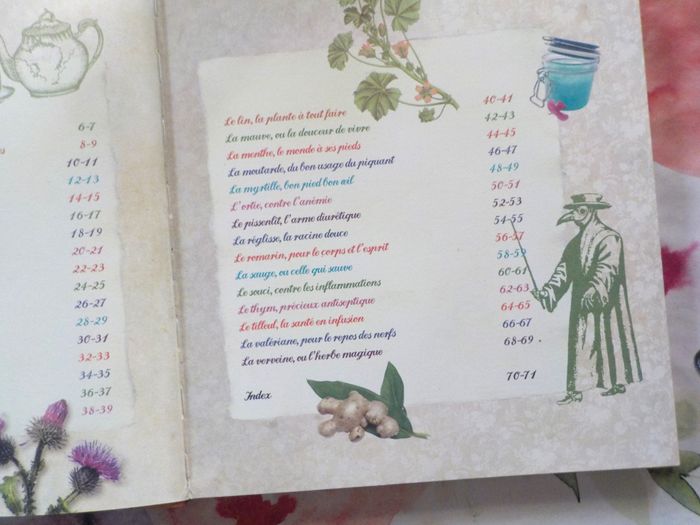 6-7
8-9
10-11
12-13
14-15
16-17
18-19
20-21
22-23
24-25
26-27
28-29
30-31
32-33
34-35
36-37
38-39
Le lin, la plante à tout faire 40-41
La mauve, ou la douceur de vivre 42-43
La menthe, le monde à ses pieds 44-45
La moutarde, du bon usage du piquant 46-47
La myrtille, bon pied bon œil 48-49
L'ortie, contre l'anémie 50-51
Le pissenlit, l'arme diurétique 52-53
La réglisse, la racine douce 54-55
Le romarin, pour le corps et l'esprit 56-57
La sauge, ou celle qui sauve 58-59
Le souci, contre les inflammations 60-61
Le thym, précieux antiseptique 62-63
Le tilleul, la santé en infusion 64-65
La valériane, pour le repos des nerfs 66-67
La verveine, ou l'herbe magique 68-69
Index 70-71